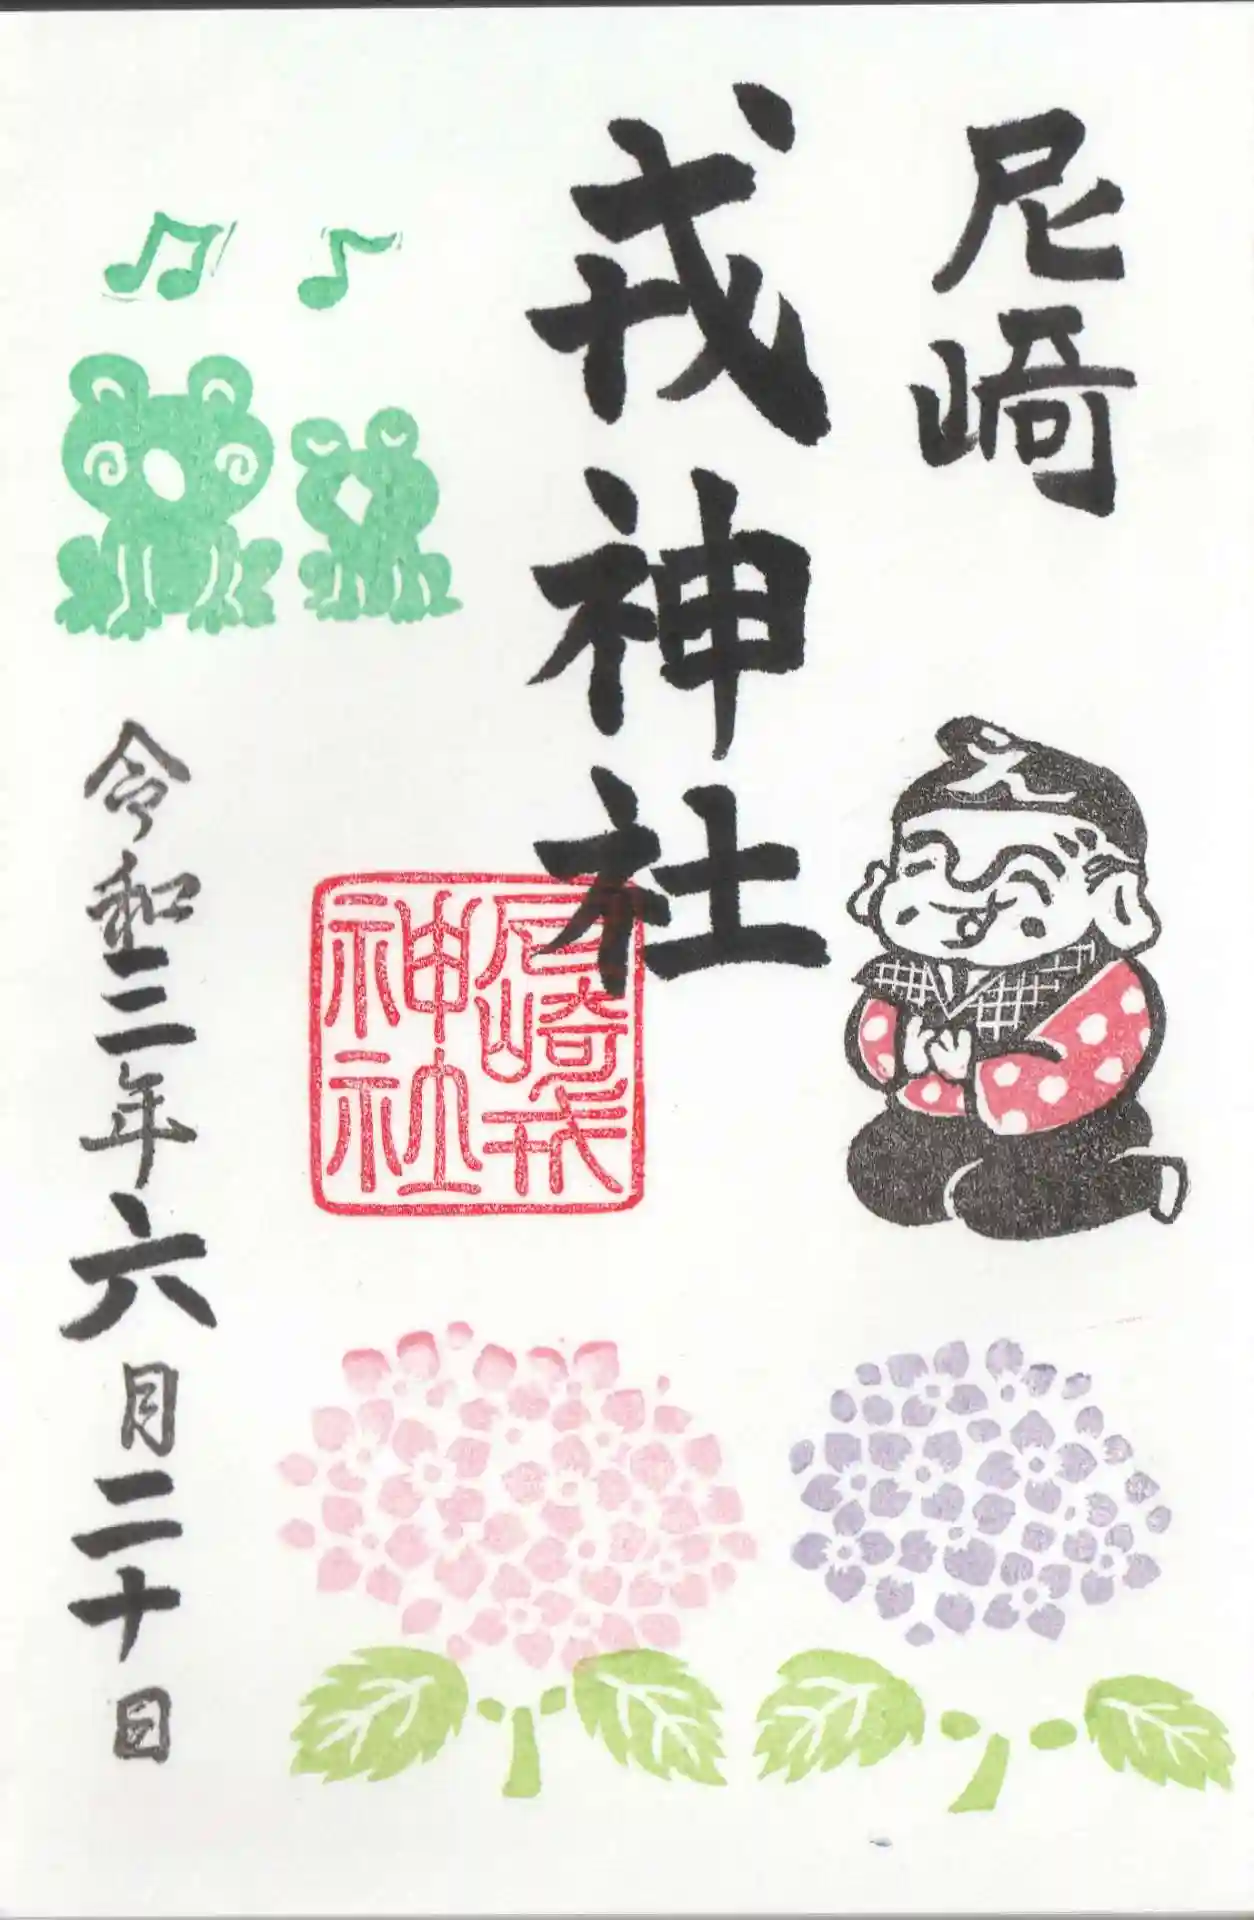 尼崎
戎神社
え
尼崎戎
神社
令和三年六月二十日